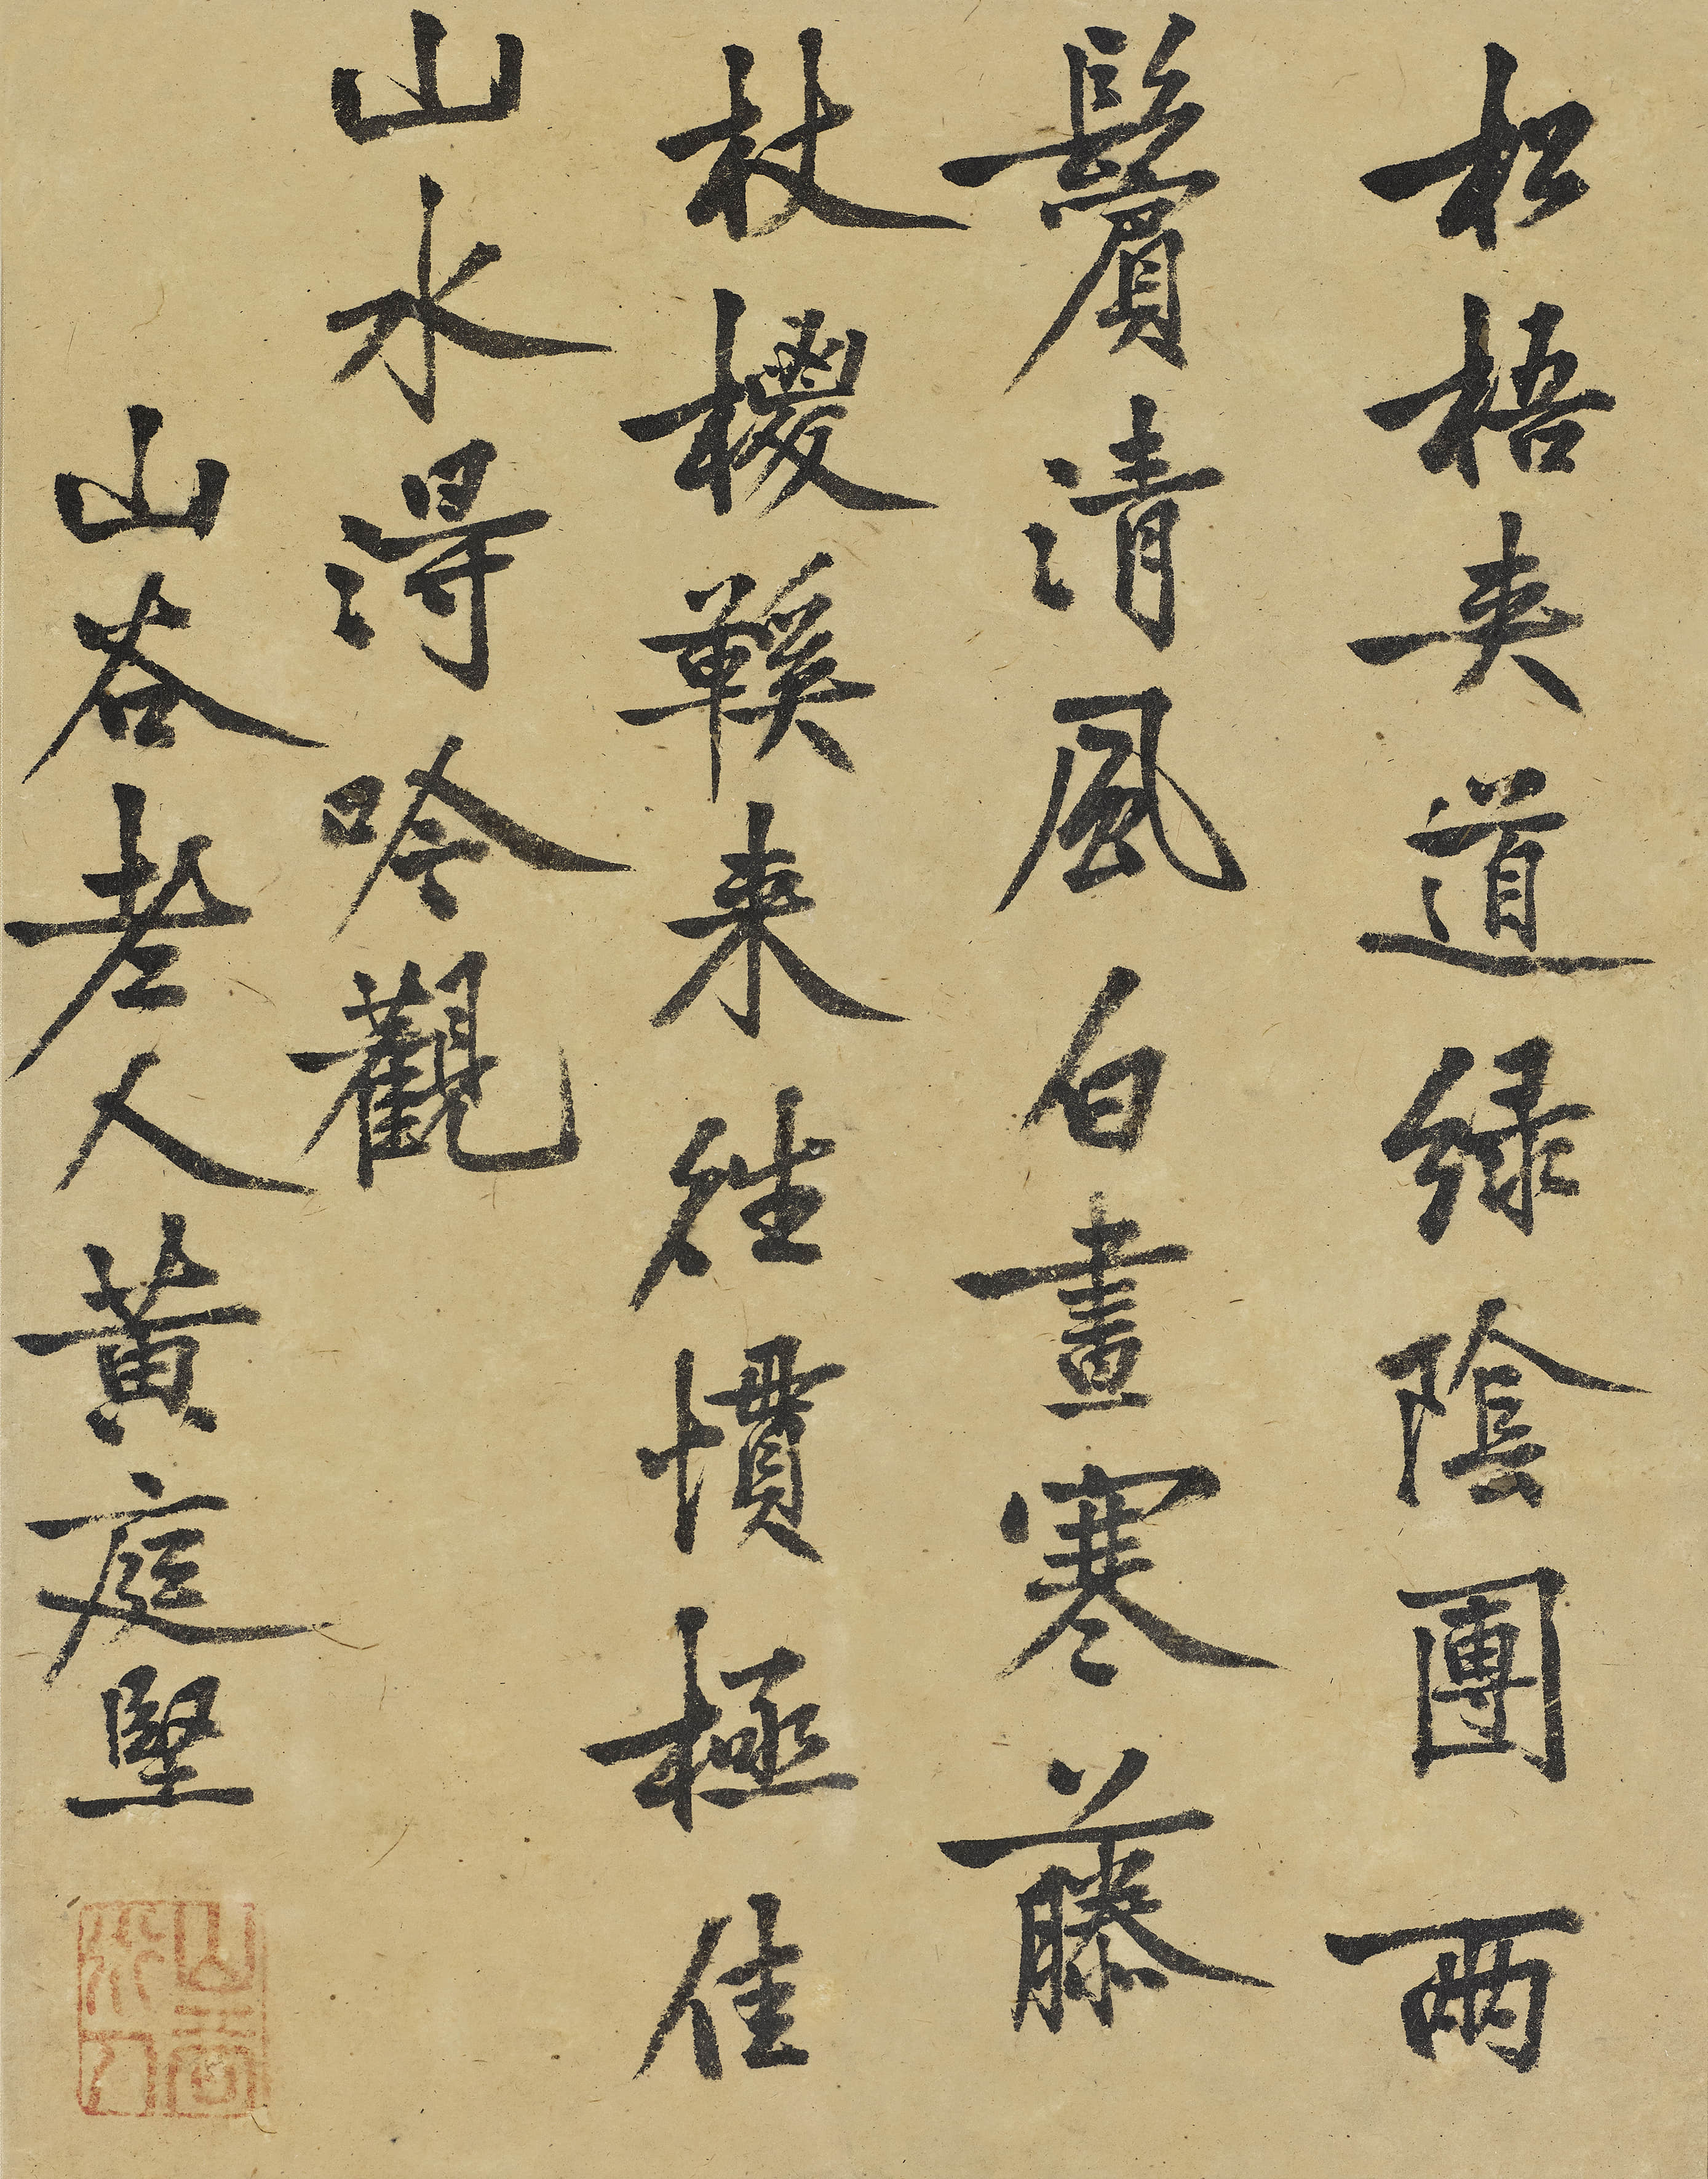 松梧夹道緑陰團两
鬢清風白晝寒藤
杖椶鞵来往慣極佳
山水得吟觀
山谷老人黄庭堅